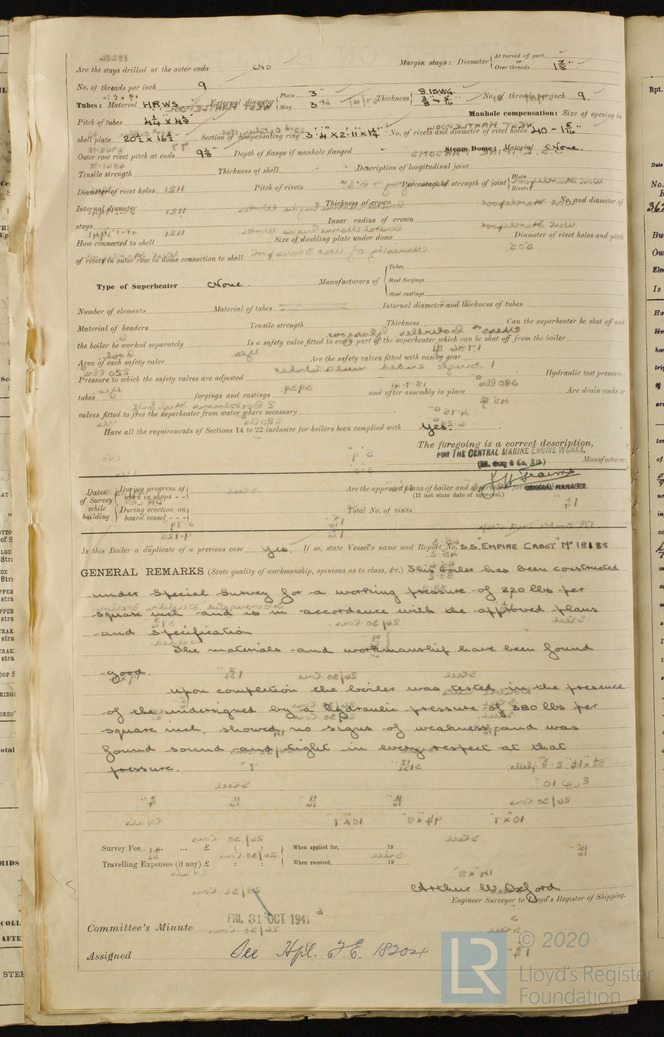 Are the stays drilled at the outer ends No Margin stays: Diameter { At turned off part, or Over threads 1 7/8"
No. of threads per inch 9
Tubes: Material H.R.W.S External diameter { Plain 3" Stay 3" Thickness { 8 ISWG No. of threads per inch 9.
Pitch of tubes Manhole compensation: Size of opening in
shell plate 20½ x 16½ Section of compensating ring No. of rivets and diameter of rivet holes 40 -
Outer row rivet pitch at ends Depth of flange if manhole flanged Steam Dome: Material None.
Tensile strength Thickness of shell Description of longitudinal joint
Diameter of rivet holes Pitch of rivets Percentage of strength of joint { Plate Rivets
Internal diameter Thickness of crown No. and diameter of
stays Inner radius of crown
How connected to shell Size of doubling plate under dome Diameter of rivet holes and pitch
of rivets in outer row in dome connection to shell
Type of Superheater None. Manufacturers of { Tubes Steel forgings Steel castings
Number of elements Material of tubes Internal diameter and thickness of tubes
Material of headers Tensile strength Thickness Can the superheater be shut off and
the boiler be worked separately Is a safety valve fitted to every part of the superheater which can be shut off from the boiler
Area of each safety valve Are the safety valves fitted with easing gear
Pressure to which the safety valves are adjusted Hydraulic test pressure:
tubes forgings and castings and after assembly in place Are drain cocks or
valves fitted to free the superheater from water where necessary
Have all the requirements of Sections 14 to 22 inclusive for boilers been complied with Yes.
The foregoing is a correct description,
FOR THE CENTRAL MARINE ENGINE WORKS,
(Wm. Gray & Co. Ltd.) Manufacturer.
GENERAL MANAGER
Dates of Survey while building { During progress of work in shops - - During erection on board vessel - - - Are the approved plans of boiler and superheater forwarded
(If not state date of approval.)
Total No. of visits
Is this Boiler a duplicate of a previous case Yes. If so, state Vessel's name and Report No. S.S. "EMPIRE CABOT" No 18188
GENERAL REMARKS (State quality of workmanship, opinions as to class, &c.) This boiler has been constructed
under Special Survey for a working pressure of 220 lbs per
square inch and is in accordance with the approved plans
and specification
The materials and workmanship have been found
good.
Upon completion the boiler was tested in the presence
of the undersigned by a hydraulic pressure of 380 lbs per
square inch, showed no signs of weakness, and was
found sound and tight in every respect at that
pressure.
Survey Fee ... ... £ : : When applied for, 19
Travelling Expenses (if any) £ : : When received, 19
Arthur W. Oxford
Engineer Surveyor to Lloyd's Register of Shipping.
Committee's Minute FRI. 31 OCT 1941
Assigned See Hpl. F.E. 18204
LR © 2020
Lloyd's Register
Foundation